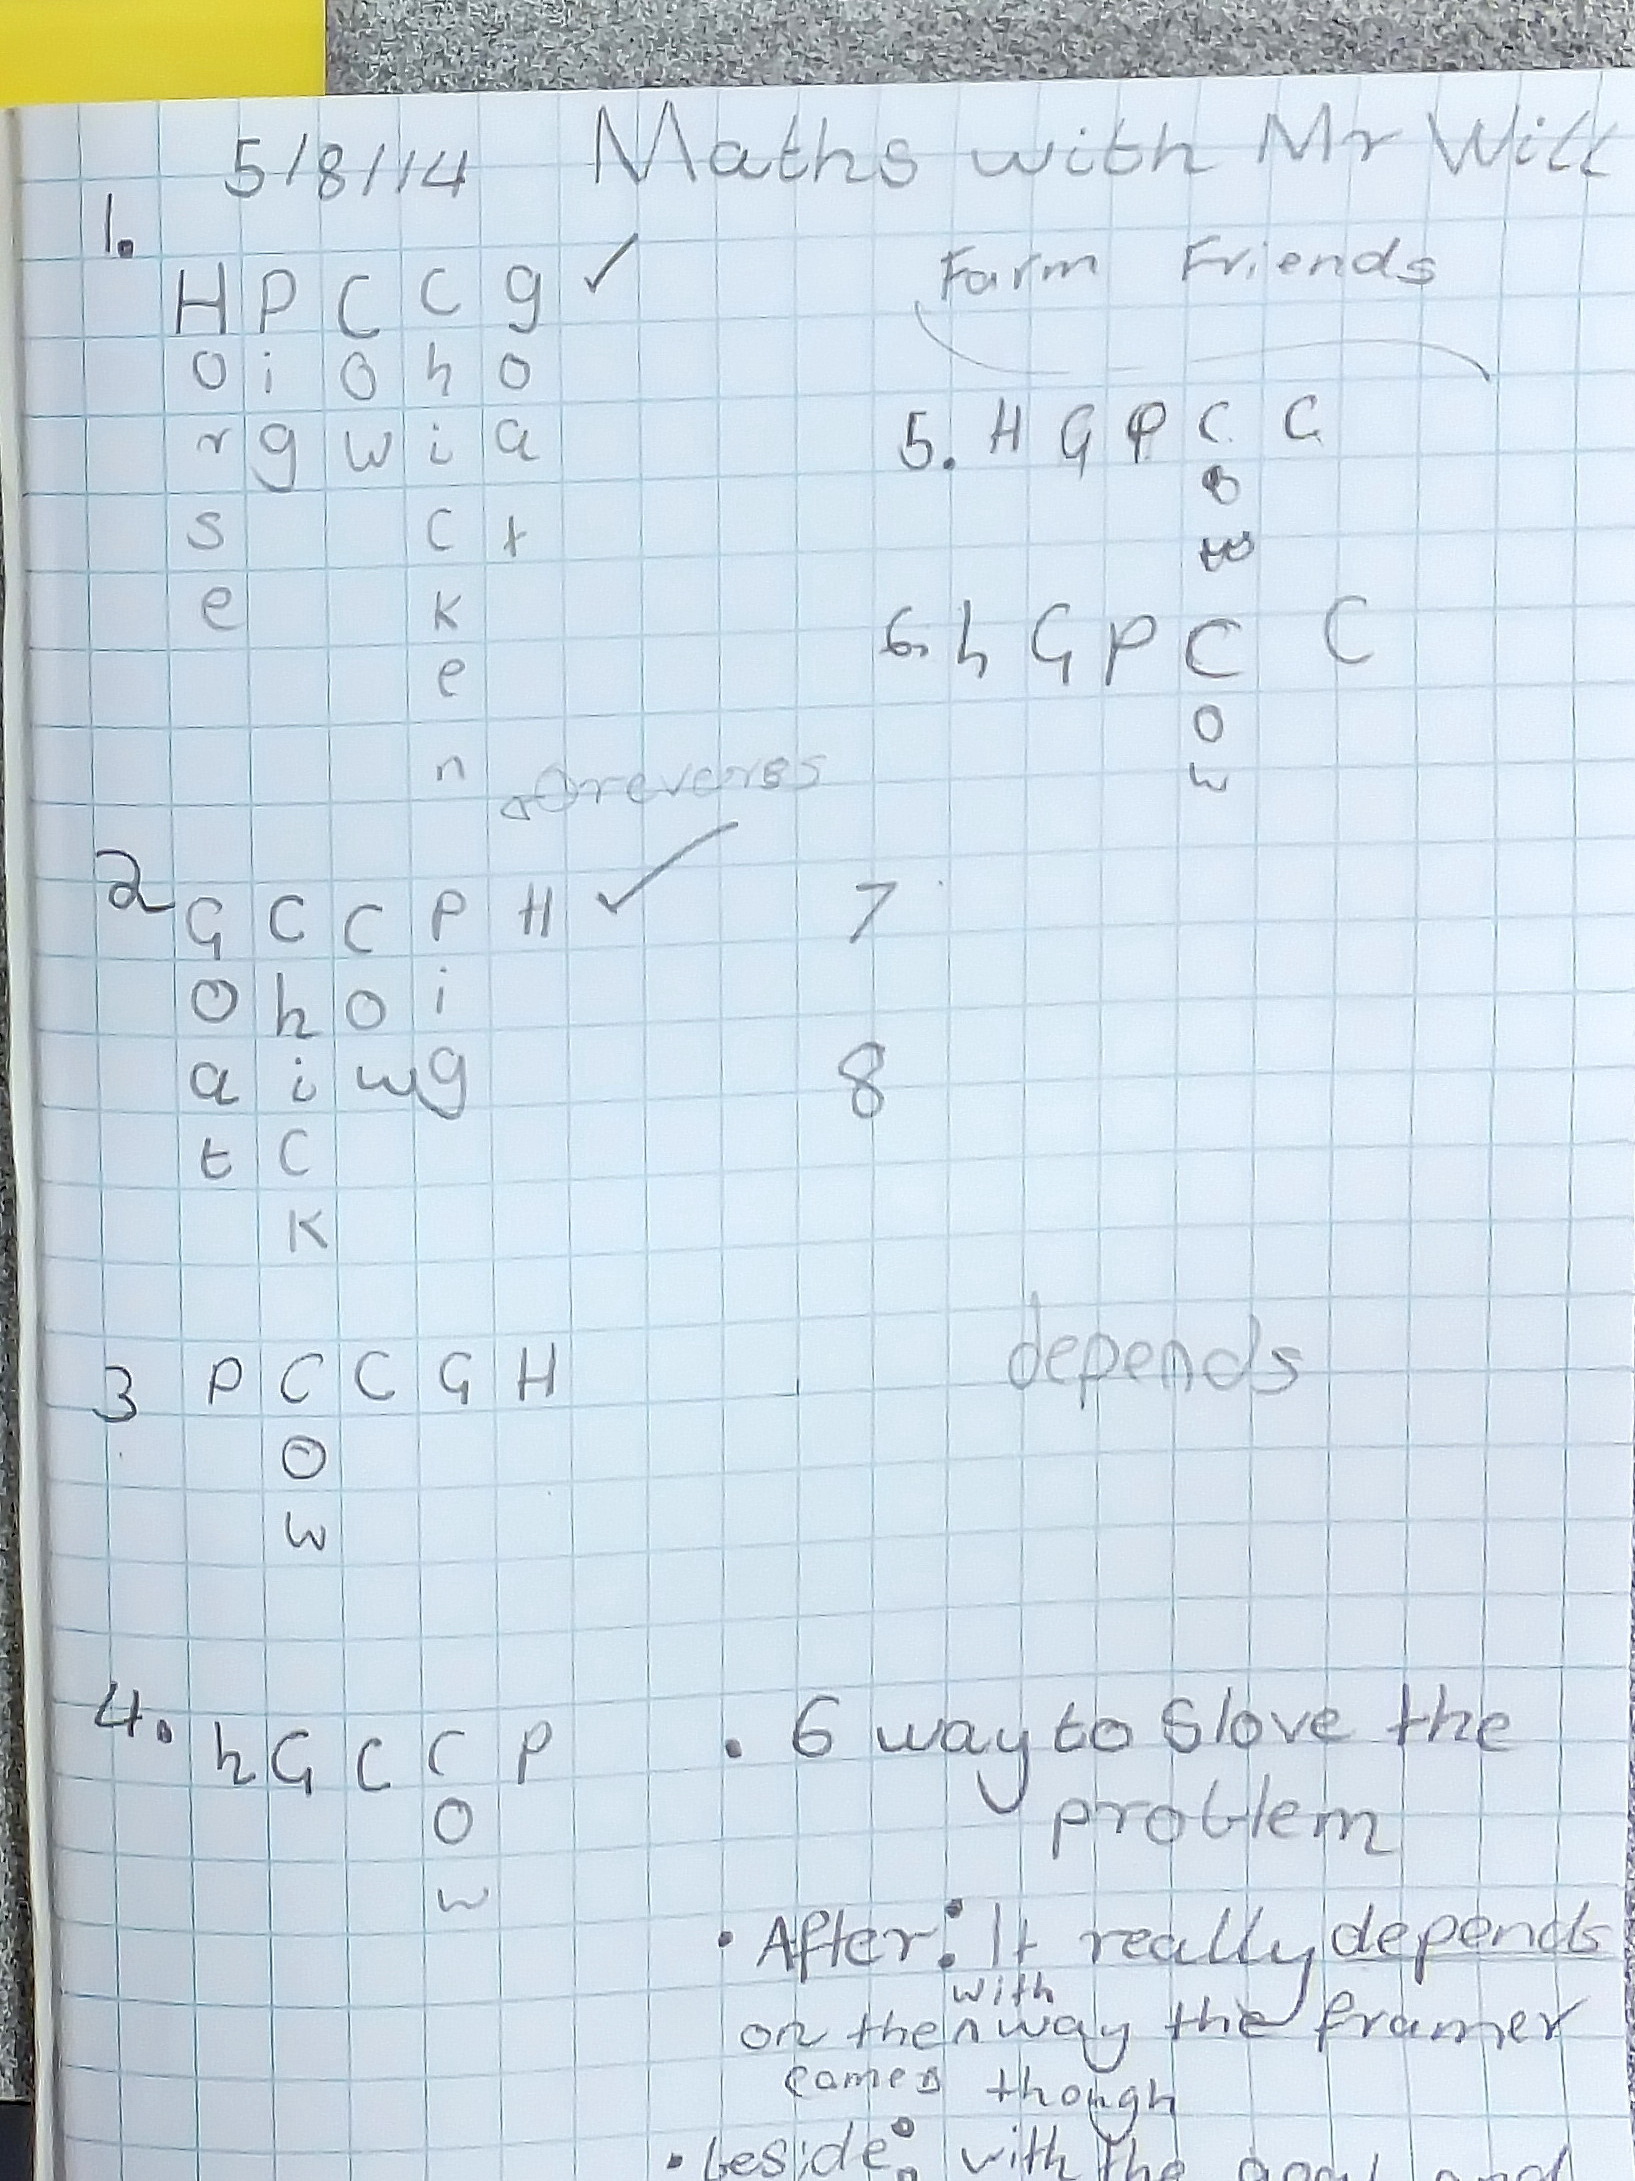 5/8/14 Maths with Mr Will
Farm Friends
1.
H P C C g ✓
o i o h o
r g w i a
s c t
e k
e
n
2 G C C P H ✓
o h o i
a i w g
t c
k
3 P C C G H
o
w
4. h G C C P
o
w
5. H G P C C
o
w
6. h G P C C
o
w
7
8
depends
• 6 way to Slove the
problem
• After: It really depends
with
on the ^ way the framer
comes though
• beside: with the goat and